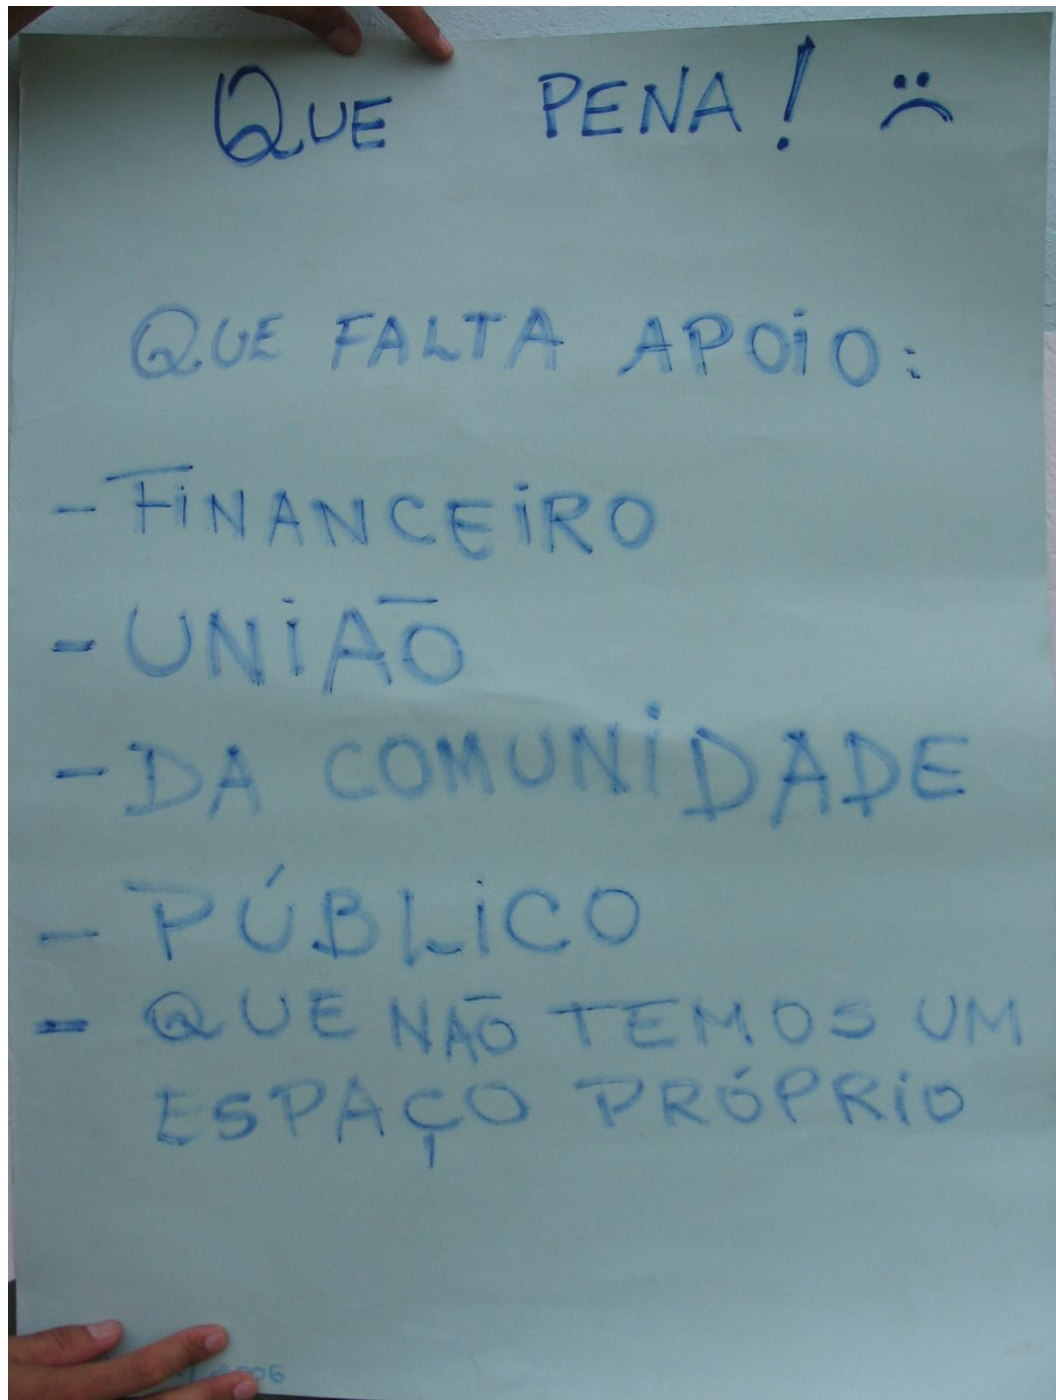 QUE PENA! :(
QUE FALTA APOIO:
- FINANCEIRO
- UNIÃO
- DA COMUNIDADE
- PÚBLICO
- QUE NÃO TEMOS UM
ESPAÇO PRÓPRIO